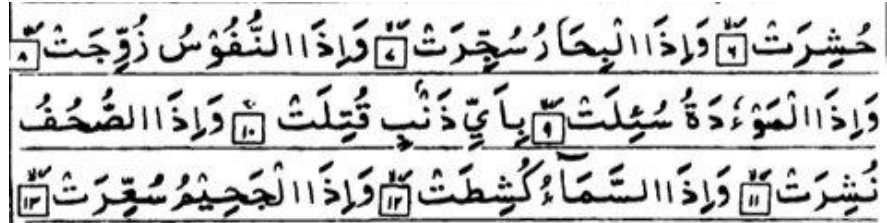 حُشِرَتْ ٦ وَاِذَا الْبِحَارُ سُجِّرَتْ ٧ وَاِذَا النُّفُوْسُ زُوِّجَتْ ٨
وَاِذَا الْمَوْءٗدَةُ سُئِلَتْ ٩ بِاَيِّ ذَنْۢبٍ قُتِلَتْ ١٠ وَاِذَا الصُّحُفُ
نُشِرَتْ ١١ وَاِذَا السَّمَآءُ كُشِطَتْ ١٢ وَاِذَا الْجَحِيْمُ سُعِّرَتْ ١٣